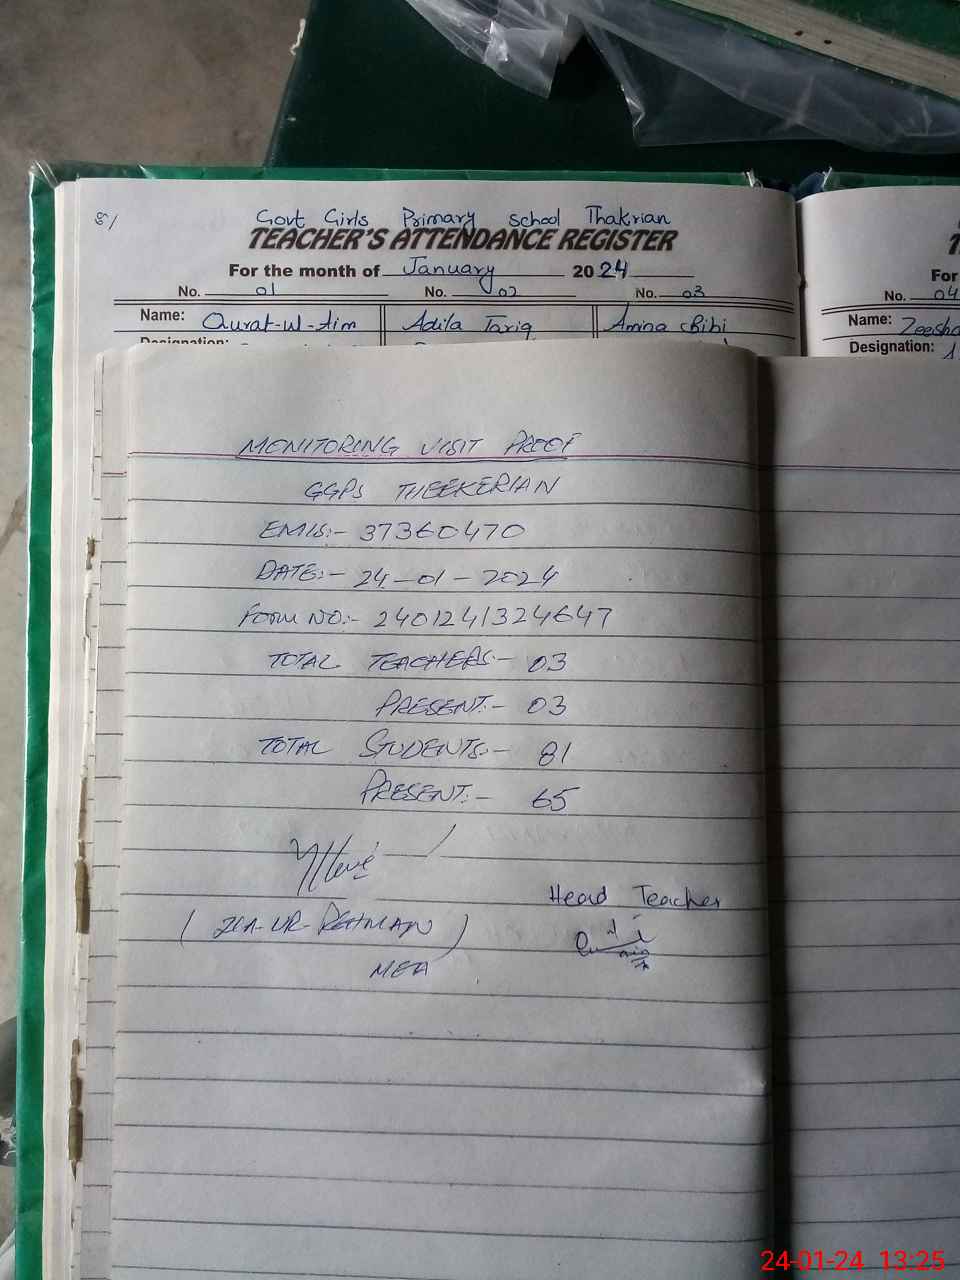 8/
Govt Girls Primary School Thakrian
TEACHER'S ATTENDANCE REGISTER
For the month of January 2024
No. 01 No. 02 No. 03
Name: Qurat-ul-Aim Adila Tariq Amina Bibi
Designation:
For
No. 04
Name: Zeesha
Designation:
MONITORING VISIT PROOF
GGPS THEEKERIAN
EMIS:- 37360470
DATE:- 24-01-2024
FORM NO:- 2401241324647
TOTAL TEACHERS:- 03
PRESENT:- 03
TOTAL STUDENTS:- 81
PRESENT:- 65
Head Teacher
(ZIA-UR-REHMAN)
MEA
24-01-24 13:25